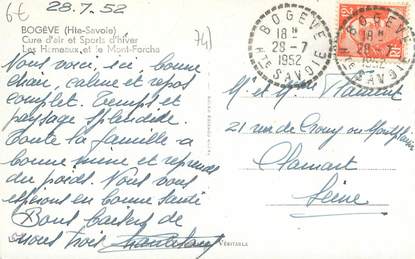 6€
28.7.52
BOGÈVE (Hte-Savoie)
Cure d'air et Sports d'hiver
Les Hameaux et le Mont-Forcha
74
Nous voici, ici, bonne
chair, calme et repos
complet. Temps et
paysage splendide.
Toute la famille a
bonne mine et reprends
du poids. Nous vous
espérons en bonne santé
Bons baisers de
nous trois
BOGÈVE
18H
28-7
1952
HTE SAVOIE
BOGÈVE
18H
28-7
1952
HTE SAVOIE
M. et Mme
21 rue de
Clamart
Seine
VÉRITABLE